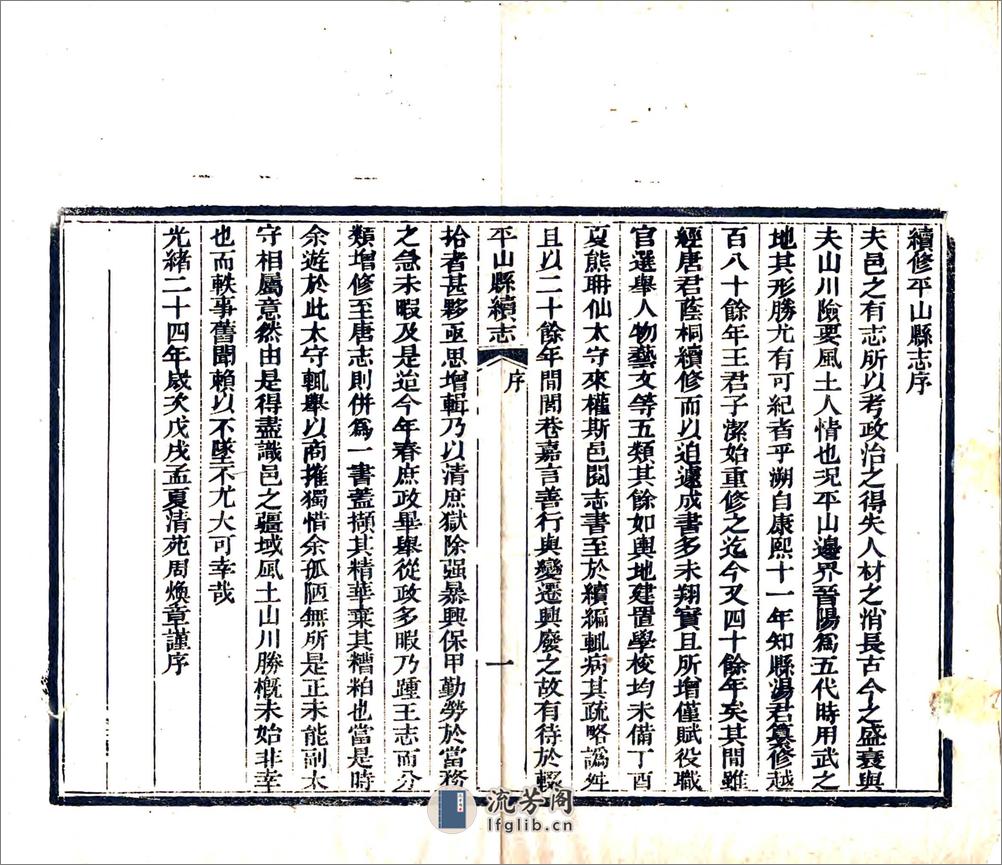 續修平山縣志序
夫邑之有志所以考政治之得失人材之消長古今之盛衰與
夫山川險要風土人情也況平山邊界晉陽為五代時用武之
地其形勝尤有可紀者乎溯自康熙十一年知縣湯君纂修越
百八十餘年王君子潔始重修之迄今又四十餘年矣其間雖
經唐君蔭桐續修而以迫遽成書多未翔實且所增僅賦役職
官選舉人物藝文等五類其餘如輿地建置學校均未備丁酉
夏熊珊仙太守來權斯邑閱志書至於續編輒病其疏略譌舛
且以二十餘年間閭巷嘉言善行與變遷興廢之故有待於輶
平山縣續志
序
一
拾者甚夥亟思增輯乃以清庶獄除强暴興保甲勤勞於當務
之急未暇及是迨今年春庶政畢舉從政多暇乃踵王志而分
類增修至唐志則併為一書蓋擷其精華棄其糟粕也當是時
余遊於此太守輒舉以商搉獨惜余孤陋無所是正未能副太
守相屬意然由是得盡識邑之疆域風土山川勝概未始非幸
也而軼事舊聞賴以不墜不尤大可幸哉
光緒二十四年歲次戊戌孟夏清苑周煥章謹序
流芳阁
lfglib.cn